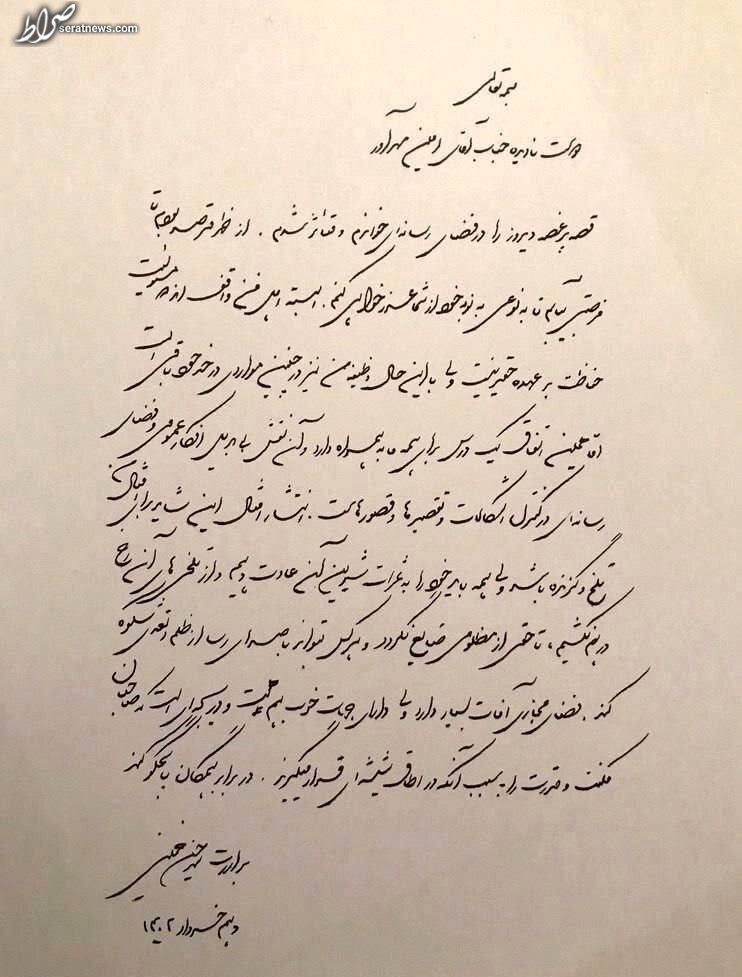 صراط
seratnews.com
بسمه تعالی
دوست نادیده جناب آقای امین مهرآذر
قصه پرغصه دیروز را در فضای رسانه‌ای خواندم و متاثر شدم . از
فرصتی بیابم تا به نوعی به نوبه خود از شما عذرخواهی کنم . البته اهل فن واقف‌اند مسئولیت
حفاظت بر عهده حقیر نیست ولی با این حال وظیفه من نیز در چنین مواردی در حد خود باقی است
اما همین اتفاق یک درس برای همه ما به همراه دارد و آن نقش بی بدیل افکار عمومی و فضای
رسانه‌ای در کنترل اشکالات و تقصیرها و قصورهاست . انتشار امثال این شاید برای امثال ما
تلخ و گزنده باشد ولی همه باید خود را به ثمرات شیرین آن عادت دهیم و از تلخی‌های آن رخ
درهم نکشیم ، تا حقی از مظلومی ضایع نگردد و هر کس بتواند با صدای رسا از ظلم و تعدی شکوه
کند . فضای مجازی آفات بسیار دارد ولی دارای جهات خوب هم هست و دریچه‌ای است که صاحبان
مکنت و قدرت را به سبب آنکه در اطاق شیشه‌ای قرار میگیرند . در برابر همگان پاسخگو کند
برادرت سید حسن خمینی
دهم خرداد ۱۴۰۲